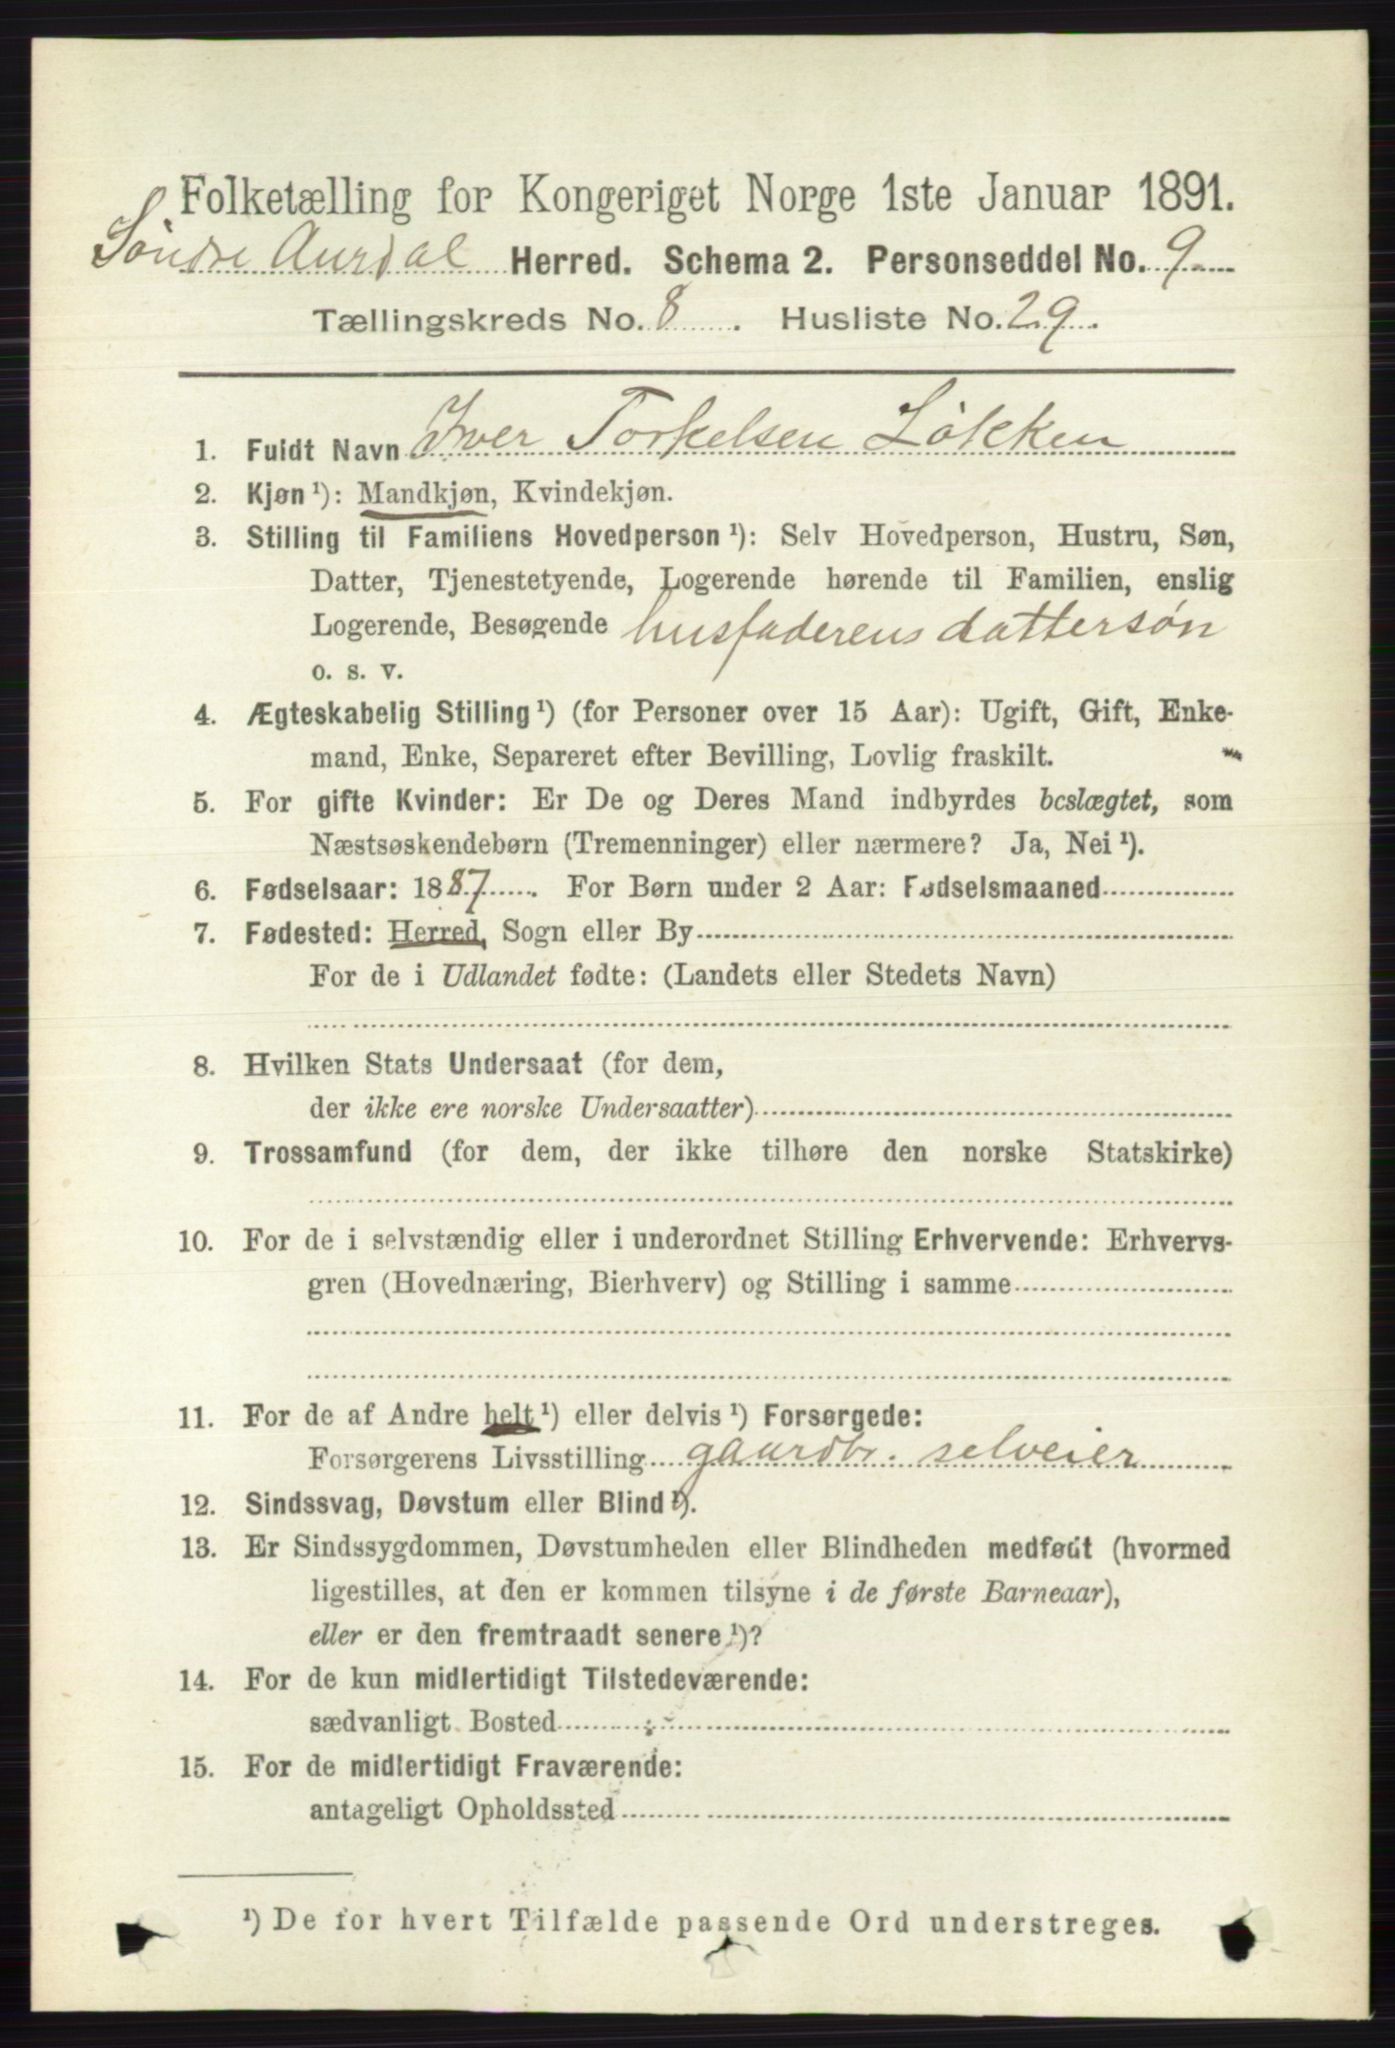 Folketælling for Kongeriget Norge 1ste Januar 1891.
Søndre Aurdal Herred. Schema 2. Personseddel No. 9
Tællingskreds No. 8. Husliste No. 29.
1. Fuldt Navn Iver Torkelsen Løkken
2. Kjøn¹): Mandkjøn, Kvindekjøn.
3. Stilling til Familiens Hovedperson¹): Selv Hovedperson, Hustru, Søn,
Datter, Tjenestetyende, Logerende hørende til Familien, enslig
Logerende, Besøgende husfaderens dattersøn
o. s. v.
4. Ægteskabelig Stilling¹) (for Personer over 15 Aar): Ugift, Gift, Enke-
mand, Enke, Separeret efter Bevilling, Lovlig fraskilt.
5. For gifte Kvinder: Er De og Deres Mand indbyrdes beslægtet, som
Næstsøskendebørn (Tremenninger) eller nærmere? Ja, Nei¹).
6. Fødselsaar: 1887. For Børn under 2 Aar: Fødselsmaaned
7. Fødested: Herred, Sogn eller By
For de i Udlandet fødte: (Landets eller Stedets Navn)
8. Hvilken Stats Undersaat (for dem,
der ikke ere norske Undersaatter)
9. Trossamfund (for dem, der ikke tilhøre den norske Statskirke)
10. For de i selvstændig eller i underordnet Stilling Erhvervende: Erhvervs-
gren (Hovednæring, Bierhverv) og Stilling i samme
11. For de af Andre helt¹) eller delvis¹) Forsørgede:
Forsørgerens Livsstilling gaardbr. selveier
12. Sindssvag, Døvstum eller Blind¹).
13. Er Sindssygdommen, Døvstumheden eller Blindheden medfødt (hvormed
ligestilles, at den er kommen tilsyne i de første Barneaar),
eller er den fremtraadt senere¹)?
14. For de kun midlertidigt Tilstedeværende:
sædvanligt Bosted
15. For de midlertidigt Fraværende:
antageligt Opholdssted
¹) De for hvert Tilfælde passende Ord understreges.